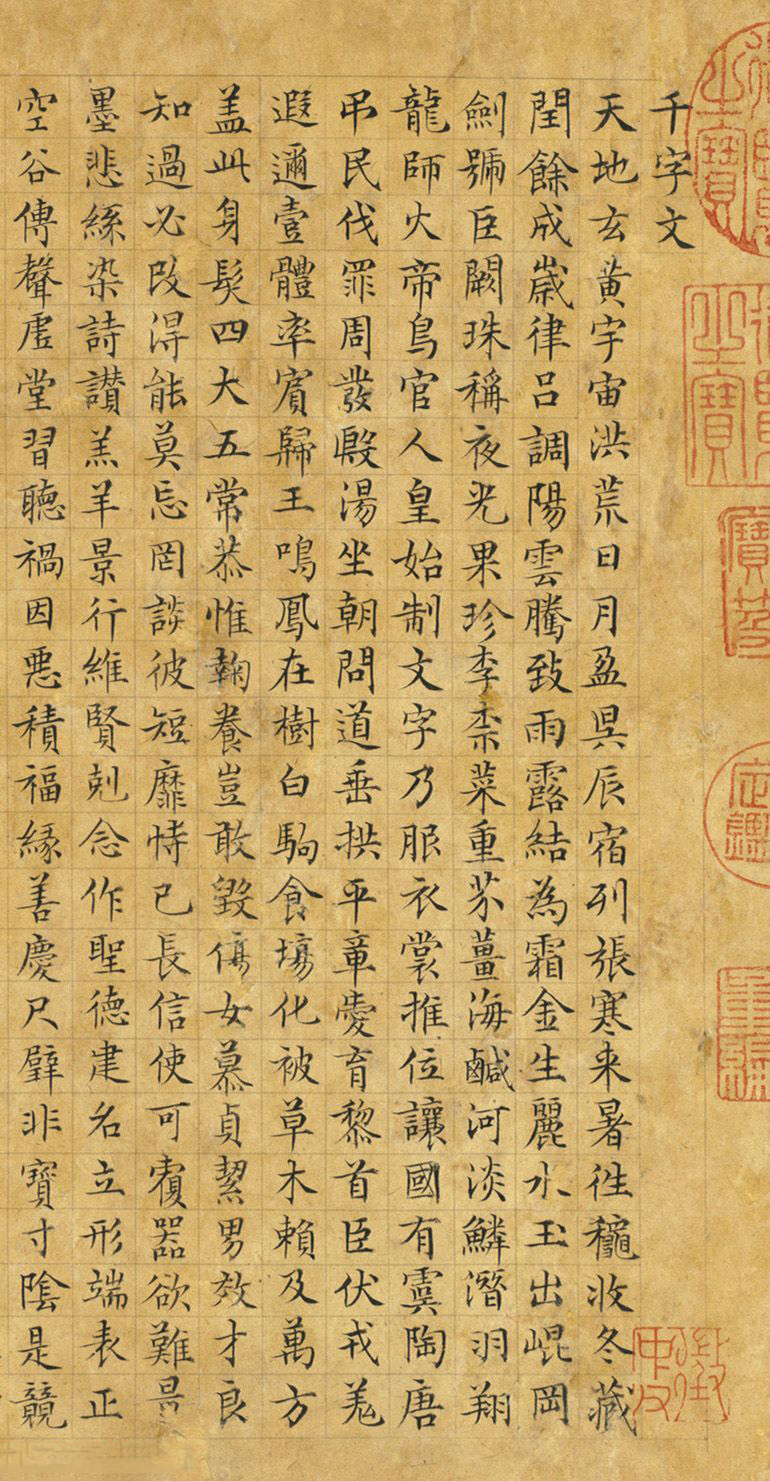 千字文
天地玄黄宇宙洪荒日月盈昃辰宿列張寒来暑徃穐收冬藏
閏餘成歲律呂調陽雲騰致雨露結為霜金生麗水玉出崐岡
劍號巨闕珠稱夜光果珍李柰菜重芥薑海鹹河淡鱗潛羽翔
龍師火帝鳥官人皇始制文字乃服衣裳推位讓國有虞陶唐
弔民伐罪周發殷湯坐朝問道垂拱平章愛育黎首臣伏戎羌
遐邇壹體率賓歸王鳴鳳在樹白駒食場化被草木賴及萬方
盖此身髮四大五常恭惟鞠養豈敢毀傷女慕貞絜男效才良
知過必改得能莫忘罔談彼短靡恃己長信使可覆器欲難量
墨悲絲染詩讚羔羊景行維賢剋念作聖德建名立形端表正
空谷傳聲虛堂習聽禍因惡積福緣善慶尺璧非寶寸陰是競